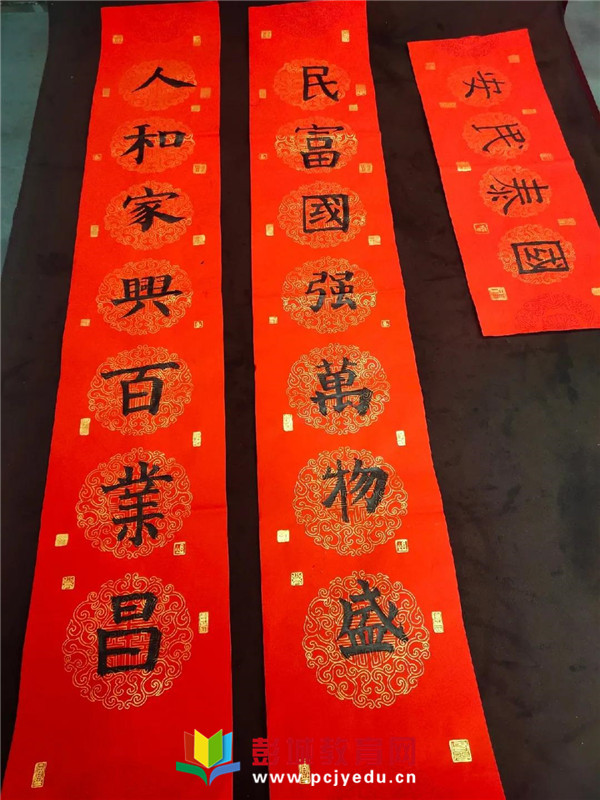 民富國强萬物盛
人和家興百業昌
國泰民安
彭城教育网
www.pcjyedu.cn